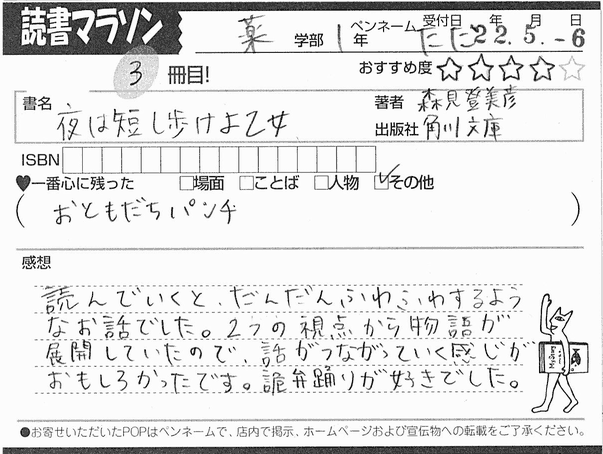 読書マラソン
薬 学部 1年 ペンネーム たにた 受付日 22年 5.月 -6日
3 冊目! おすすめ度 ★★★★☆
書名 夜は短し歩けよ乙女 著者 森見登美彦
出版社 角川文庫
ISBN
♥一番心に残った □場面 □ことば □人物 ☑その他
(おともだちパンチ)
感想
読んでいくと、だんだんふわふわするよう
なお話でした。2つの視点から物語が
展開していたので、話がつながっていく感じが
おもしろかったです。詭弁踊りが好きでした。
●お寄せいただいたPOPはペンネームで、店内で掲示、ホームページおよび宣伝物への転載をご了承ください。